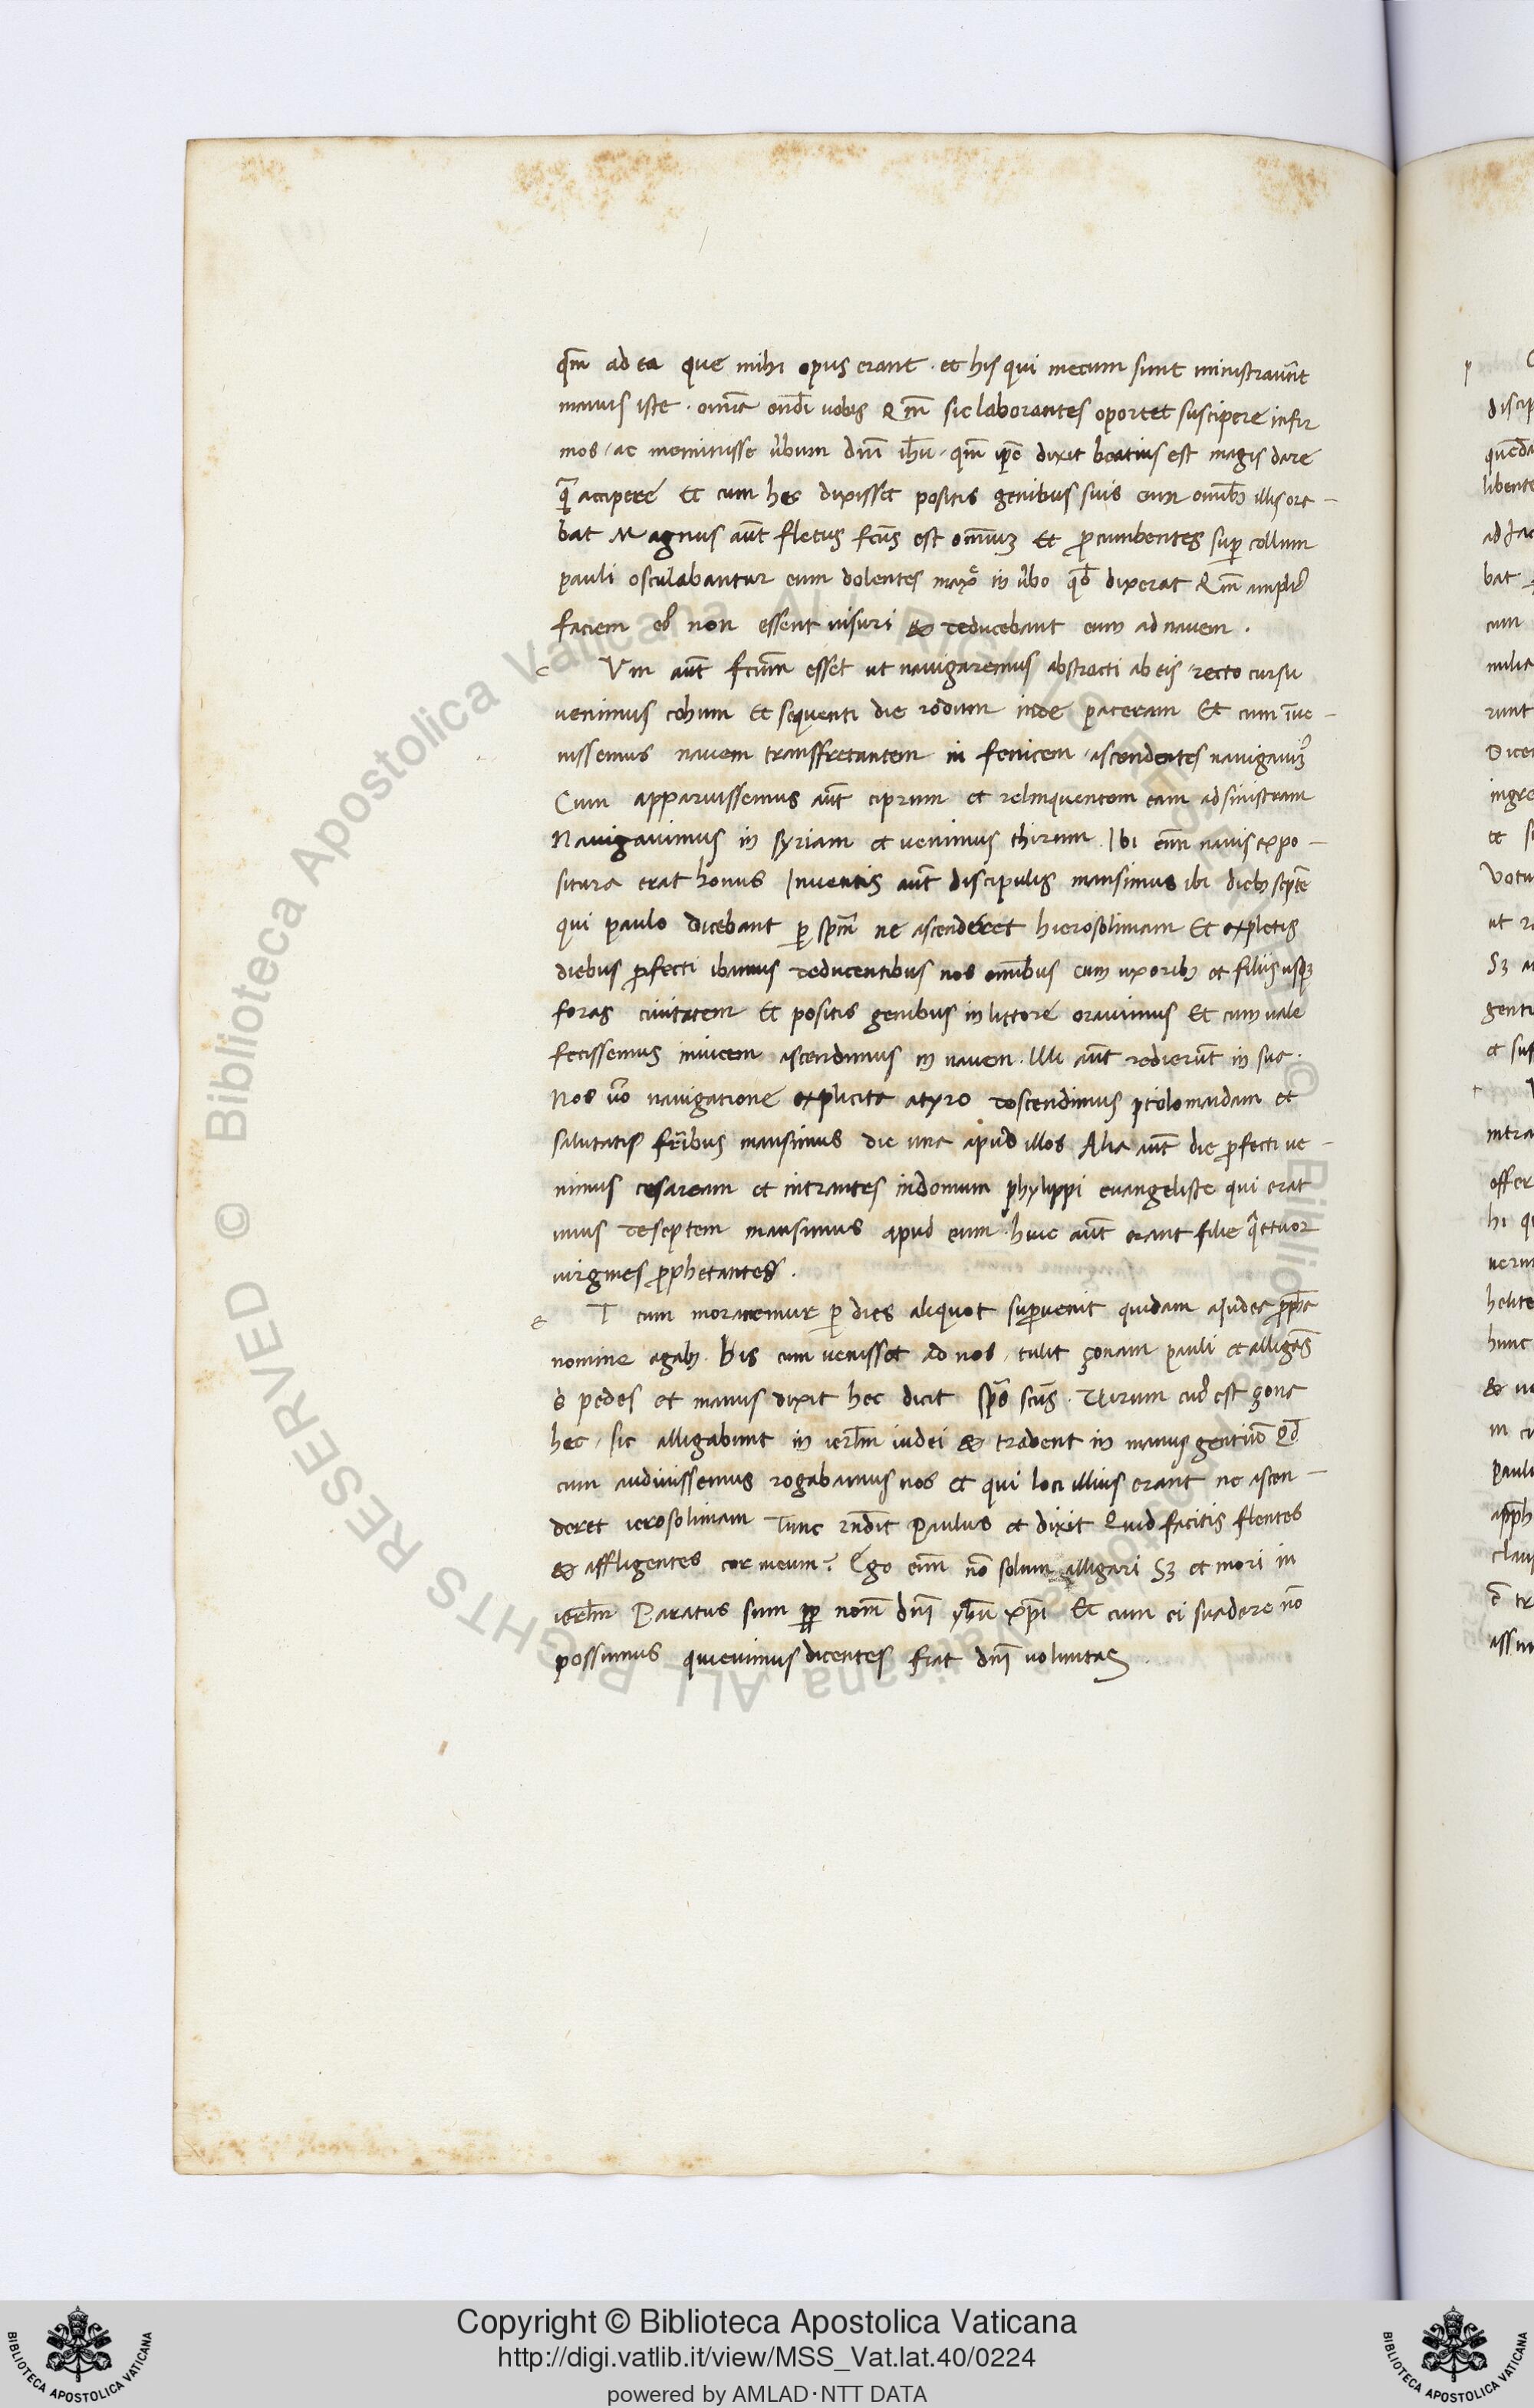 qm̅ ad ea que mihi opus erant · et his qui mecum sunt ministraver̅t
manus iste · omnia ond̅i uobis Qm̅ sic laborantes oportet suscipere infir
mos · ac meminisse ŭbum dn̅i ih̅u · qm̅ ip̅e dixit beatius est magis dare
q̅ accipere Et cum hec dixisset positis genibus suis cum omĭbꝫ illis ora –
bat Magnus aut̅ fletus fcu̅s est om̅iuꝫ Et procumbentes sup collum
pauli osculabantur eum dolentes maxe̅ in ŭbo qd̅ dixerat Qm̅ ampli9
faciem ei9 non essent uisuri & deducebant eum ad nauem .
c Vm aut̅ fcum̅ esset ut nauigaremus abstracti ab eis recto cursu
uenimus cohum Et sequenti die rodum inde pateram Et cum i̅ue –
nissemus nauem transfretantem in fenicem · ascendentes nauigauiꝫ9
Cum apparuissemus aut̅ ciprum et relinquentem eam ad sinistram
Nauigauimus in syriam et uenimus thirum . Ibi eni̅ nauis expo –
situra erat honus Inuentis aut̅ discipulis mansimus ibi diebꝫ septe̅
qui paulo dicebant ꝑ spm̅ ne ascenderet hierosolimam Et expletis
diebus profecti ibamus deducentibus nos omnibus cum uxoribꝫ et filiis usqꝫ
foras ciuitatem Et positis genibus in littore orauimus Et cum uale
fecissemus inuicem ascendimus in nauem . Illi aut̅ redieru̅t in sua .
Nos uo̅ nauigatione explicita a tyro descendimus ptolomaidam et
salutatis frı̅bus mansimus die una apud illos Alia aut̅ die profecti ue –
nimus cesaream et intrantes in domum phylippi euangeliste qui erat
unus de septem mansimus apud eum . huic aut̅ erant filie quattuor
uirgines prophetantes .
e T cum moraremur ꝑ dies aliquot superuenit quidam a Judea proph̅a
nomine agabꝫ . His cum uenisset ad nos / tulit çonam pauli et alligans
s̓ pedes et manus dixit hec dicit spu̅s scu̅s . Uirum cui9 est çona
hec / sic alligabunt in ierl̅m iudei & tradent in manus gentiu̅ Qd̅
cum audiuissemus rogabamus nos et qui loci illius erant ne ascen –
deret ierosolimam Tunc rn̅dit Paulus et dixit Quid facitis flentes
& affligentes cor meum? Ego eni̅ no̅ solum alligari Sꝫ et mori in
ierl̅m Paratus sum ꝓꝑ nom̅ dn̅i yh̅u xp̅i Et cum ei suadere no̅
possimus quieuimus dicentes fiat dn̅i uoluntas
© Biblioteca Apostolica Vaticana ALL RIGHTS RESERVED
© Biblioteca Apostolica Vaticana ALL RIGHTS RESERVED
Copyright © Biblioteca Apostolica Vaticana
http://digi.vatlib.it/view/MSS_Vat.lat.40/0224
powered by AMLAD·NTT DATA
BIBLIOTECA APOSTOLICA VATICANA
BIBLIOTECA APOSTOLICA VATICANA